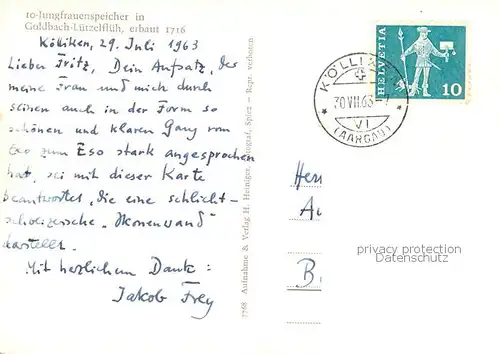 10-Jungfrauenspeicher in
Goldbach-Lützelflüh, erbaut 1716
Kölliken, 29. Juli 1963
Lieber Fritz, Dein Aufsatz, der
meine Frau und mich durch
seinen auch in der Form so
schönen und klaren Gang vom
Exo zum Eso stark angesprochen
hat, sei mit dieser Karte
beantwortet, die eine schlicht-
schweizerische „Ikonenwand"
darstellt.
Mit herzlichem Dank:
Jakob Frey
7768 Aufnahme & Verlag H. Heiniger, Fotograf, Spiez – Repr. verboten
HELVETIA
10
KÖLLIKEN
30.VII.63
VI
(AARGAU)
Herr
A
B
privacy protection
Datenschutz